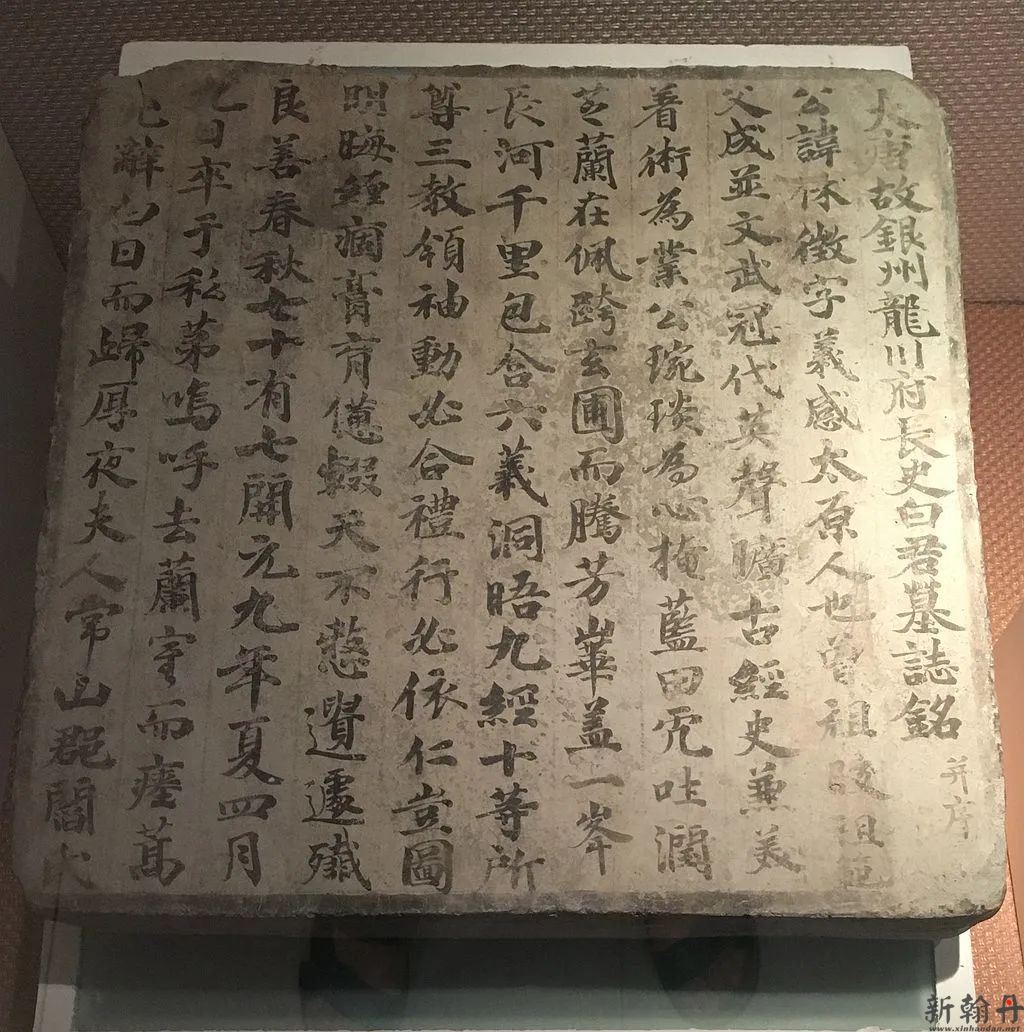 大唐故銀州龍川府長史白君墓誌銘 并序
公諱休徵字義感太原人也曾祖陵祖
父成並文武冠代英聲曠古經史兼美
著術為業公琬琰為心掩藍田而吐潤
芝蘭在佩跨玄圃而騰芳崋蓋一峯
長河千里包含六義洞晤九經十等所
尊三教領袖動必合禮行必依仁豈圖
明晦纏痼膏肓僫輟天不憖遺遽殲
良善春秋七十有七開元九年夏四月
九日卒于私第嗚呼去蘭室而瘞蒿
辭白日而歸厚夜夫人常山郡閻氏
新翰丹
www.xinhandan.net